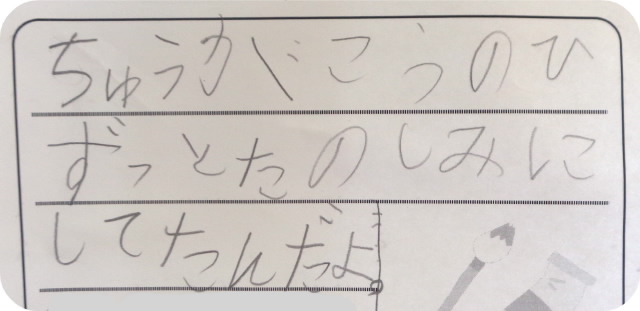 ちゅうがこうのひ
ずっとたのしみに
してたんだよ。